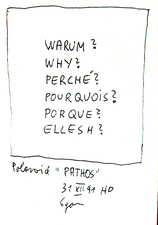 WARUM?
WHY?
PERCHÉ?
POURQUOIS?
PORQUE?
ELLESH?
Polaroid "PATHOS"
31 XII 91 HD